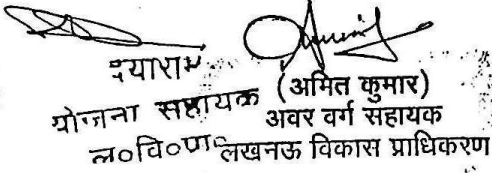 श्याराम
योजना सहायक
ल०वि०प्रा०
(अमित कुमार)
अवर वर्ग सहायक
लखनऊ विकास प्राधिकरण